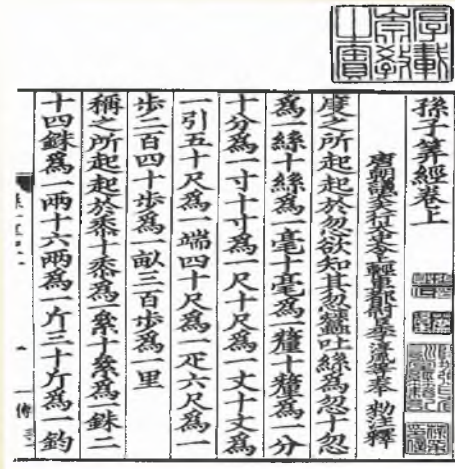 孫子筭經卷上
唐朝議大夫行太史令上輕車都尉臣李淳風等奉 勑注釋
度之所起起於忽欲知其忽蠶吐絲爲忽十忽
爲一絲十絲爲一毫十毫爲一釐十釐爲一分
十分爲一寸十寸爲一尺十尺爲一丈十丈爲
一引五十尺爲一端四十尺爲一疋六尺爲一
步二百四十步爲一畝三百步爲一里
稱之所起起於黍十黍爲一絫十絫爲一銖二
十四銖爲一兩十六兩爲一斤三十斤爲一鈞